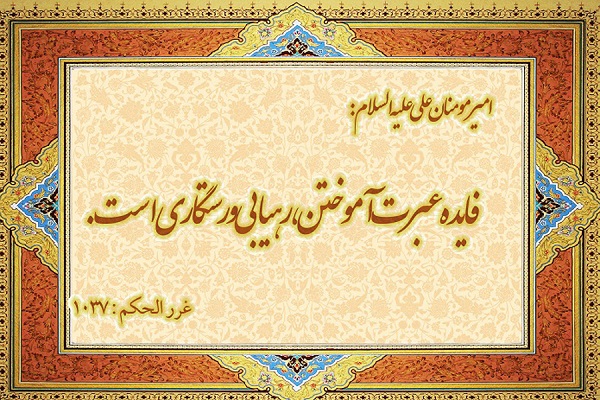 امیر مومنان علی علیه السلام:
فایده عبرت آموختن، رهیابی و رستگاری است.
غرر الحکم: ۱۰۳۷